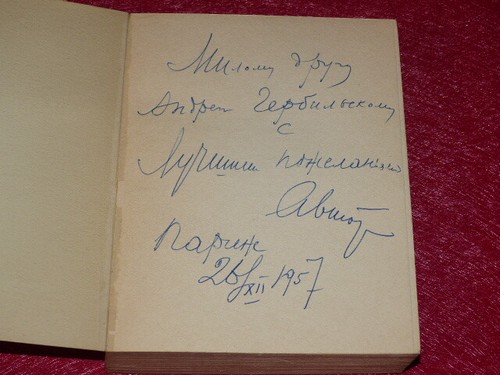 Милому другу
Андрею Чербильскому
с
Лучшими пожеланиями
Автор
Париж
26/XII 1957